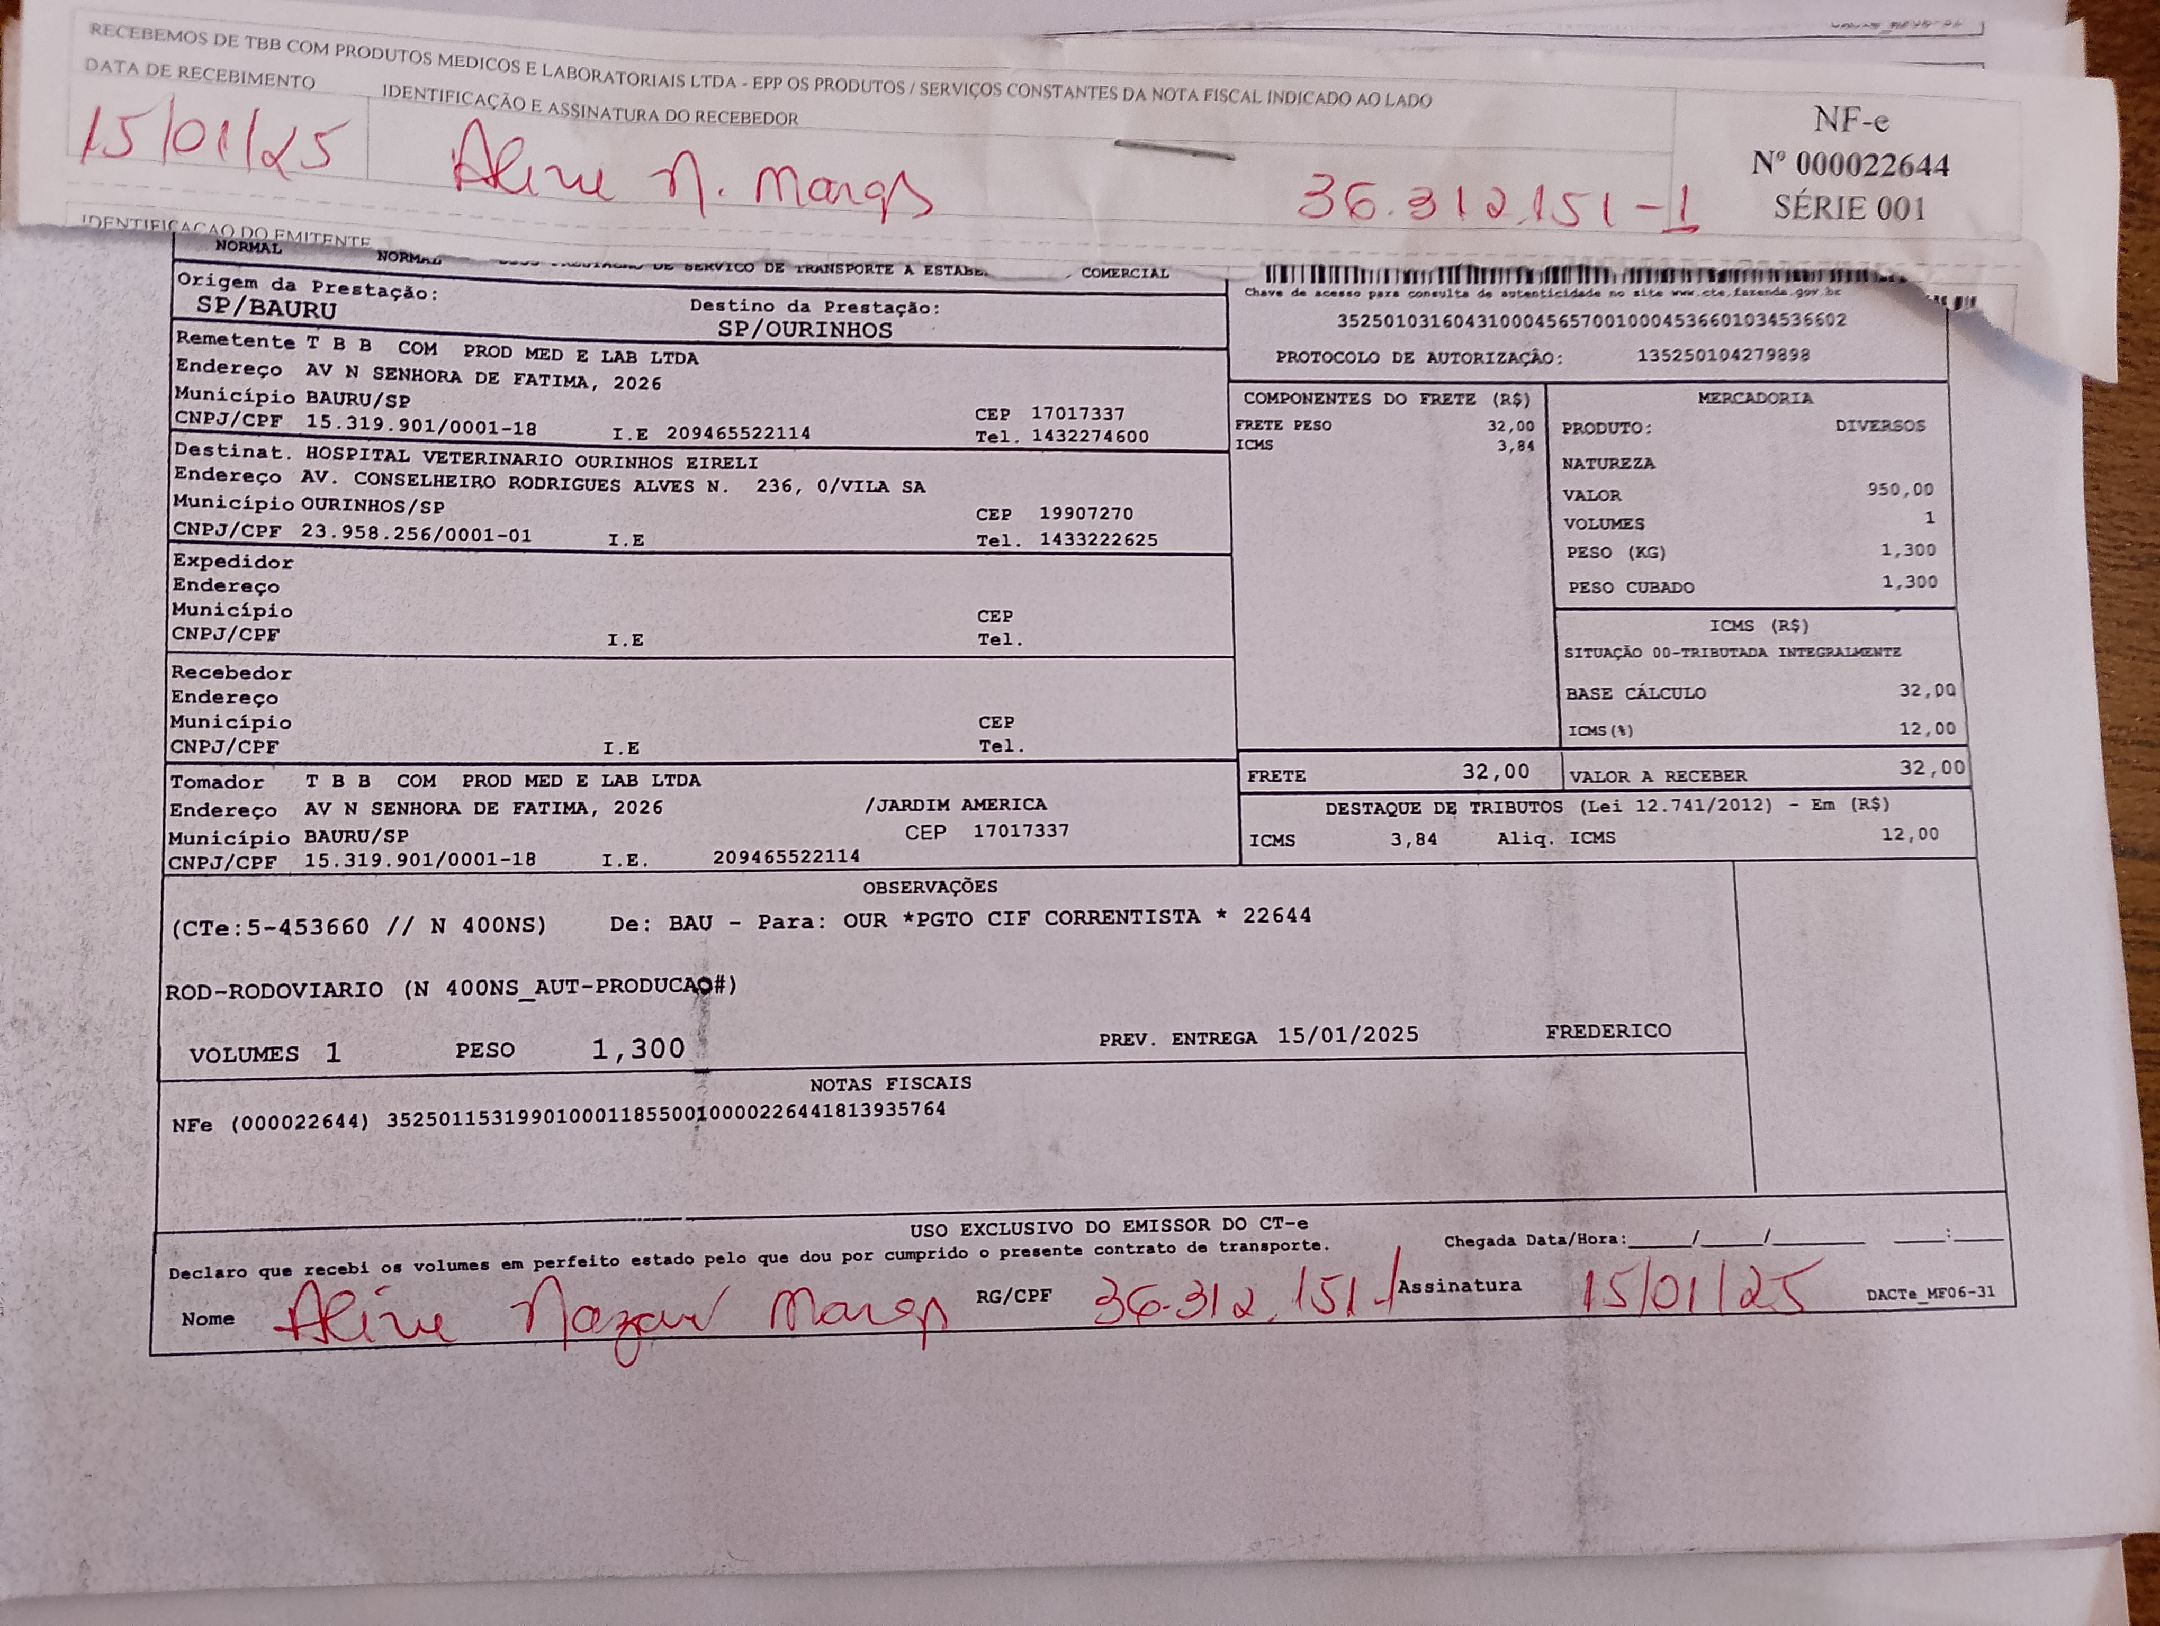 RECEBEMOS DE TBB COM PRODUTOS MEDICOS E LABORATORIAIS LTDA - EPP OS PRODUTOS / SERVIÇOS CONSTANTES DA NOTA FISCAL INDICADO AO LADO
DATA DE RECEBIMENTO IDENTIFICAÇÃO E ASSINATURA DO RECEBEDOR
15/01/25 Aline N. 36.312.151-1
NF-e
Nº 000022644
SÉRIE 001
IDENTIFICAÇÃO DO EMITENTE
NORMAL NORMAL DE SERVICO DE TRANSPORTE A COMERCIAL
Origem da Prestação: Destino da Prestação:
SP/BAURU SP/OURINHOS
Chave de acesso para consulta de autenticidade no site www.cte.fazenda.gov.br
35250103160431000456570010004536601034536602
PROTOCOLO DE AUTORIZAÇÃO: 135250104279898
Remetente T B B COM PROD MED E LAB LTDA
Endereço AV N SENHORA DE FATIMA, 2026
Município BAURU/SP CEP 17017337
CNPJ/CPF 15.319.901/0001-18 I.E 209465522114 Tel. 1432274600
Destinat. HOSPITAL VETERINARIO OURINHOS EIRELI
Endereço AV. CONSELHEIRO RODRIGUES ALVES N. 236, 0/VILA SA
Município OURINHOS/SP CEP 19907270
CNPJ/CPF 23.958.256/0001-01 I.E Tel. 1433222625
Expedidor
Endereço
Município CEP
CNPJ/CPF I.E Tel.
Recebedor
Endereço
Município CEP
CNPJ/CPF I.E Tel.
Tomador T B B COM PROD MED E LAB LTDA
Endereço AV N SENHORA DE FATIMA, 2026 /JARDIM AMERICA
Município BAURU/SP CEP 17017337
CNPJ/CPF 15.319.901/0001-18 I.E. 209465522114
COMPONENTES DO FRETE (R$)
FRETE PESO 32,00
ICMS 3,84
MERCADORIA
PRODUTO: DIVERSOS
NATUREZA
VALOR 950,00
VOLUMES 1
PESO (KG) 1,300
PESO CUBADO 1,300
ICMS (R$)
SITUAÇÃO 00-TRIBUTADA INTEGRALMENTE
BASE CÁLCULO 32,00
ICMS(%) 12,00
FRETE 32,00 VALOR A RECEBER 32,00
DESTAQUE DE TRIBUTOS (Lei 12.741/2012) - Em (R$)
ICMS 3,84 Aliq. ICMS 12,00
OBSERVAÇÕES
(CTe:5-453660 // N 400NS) De: BAU - Para: OUR *PGTO CIF CORRENTISTA * 22644
ROD-RODOVIARIO (N 400NS_AUT-PRODUCAO#)
VOLUMES 1 PESO 1,300 PREV. ENTREGA 15/01/2025 FREDERICO
NOTAS FISCAIS
NFe (000022644) 35250115319901000118550010000226441813935764
USO EXCLUSIVO DO EMISSOR DO CT-e
Declaro que recebi os volumes em perfeito estado pelo que dou por cumprido o presente contrato de transporte. Chegada Data/Hora:_____/_____/_______ ____:____
Nome Aline RG/CPF 36.312.151-1 Assinatura 15/01/25 DACTe_MF06-31